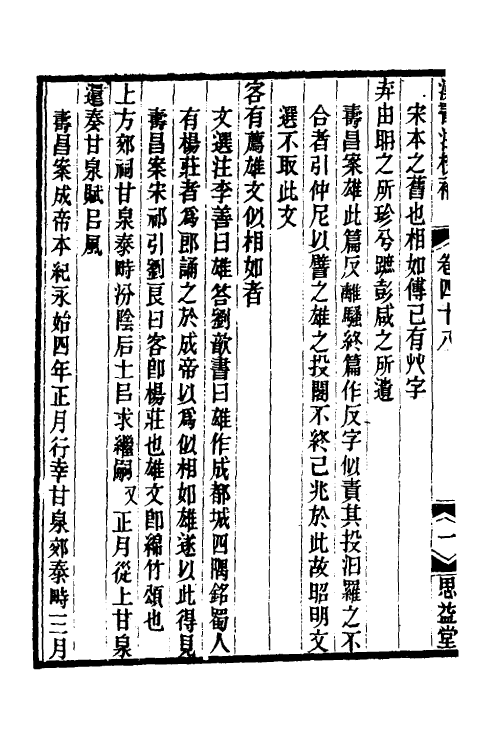 漢書注校補 卷四十八 一 思益堂
宋本之舊也相如傳已有艸字
弃由聃之所珍兮蹠彭咸之所遺
壽昌案雄此篇反離騷終篇作反字似責其投汨羅之不
合者引仲尼以譬之雄之投閣不終已兆於此故昭明文
選不取此文
客有薦雄文似相如者
文選注李善曰雄答劉歆書曰雄作成都城四隅銘蜀人
有楊莊者爲郎誦之於成帝以爲似相如雄遂以此得見
壽昌案宋祁引劉良曰客卽楊莊也雄文卽綿竹頌也
上方郊祠甘泉泰畤汾陰后土㠯求繼嗣 又 正月從上甘泉
還奏甘泉賦㠯風
壽昌案成帝本紀永始四年正月行幸甘泉郊泰畤三月